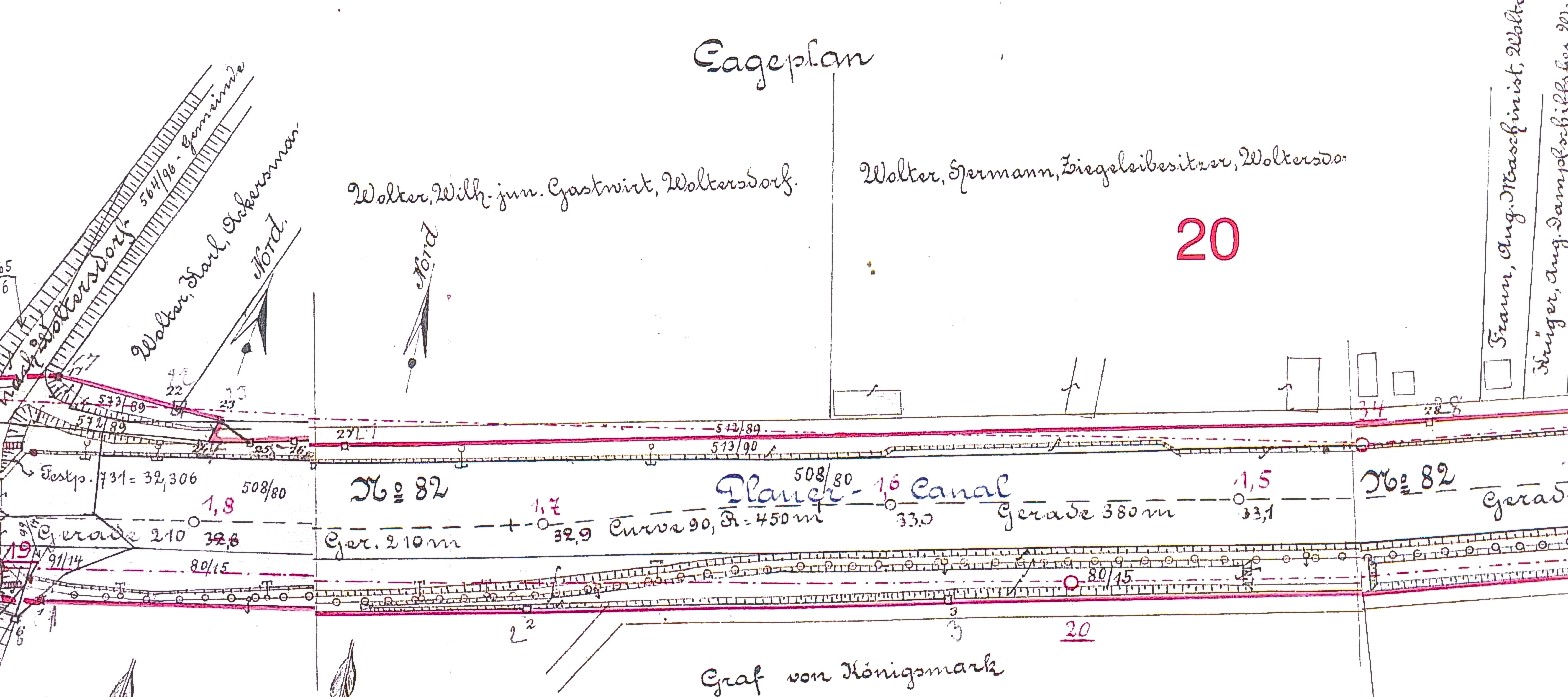 Lageplan
nach Woltersdorf
564/96 - Gemeinde
Wolter, Karl, Ackersman-
Nord.
Nord
Wolter, Wilh. jun. Gastwirt, Woltersdorf.
Wolter, Hermann, Ziegeleibesitzer, Woltersdo-
20
Fraun, Aug. Maschinist, Wolte
Krüger, Aug. Dampfschiffsbes. W
22
23
573/89
572/89
24
25
26
27
512/89
513/90
34
28
Festp. 731 = 32,306
508/80
1,8
Gerade 210
32,8
No 82
1,7
Ger. 210 m
32,9
Curve 90, R = 450 m
508/80
Plauer - Canal
1,6
33,0
Gerade 380 m
1,5
33,1
No 82
Gerad
19
91/14
80/15
80/15
2
2
3
3
20
Graf von Königsmark